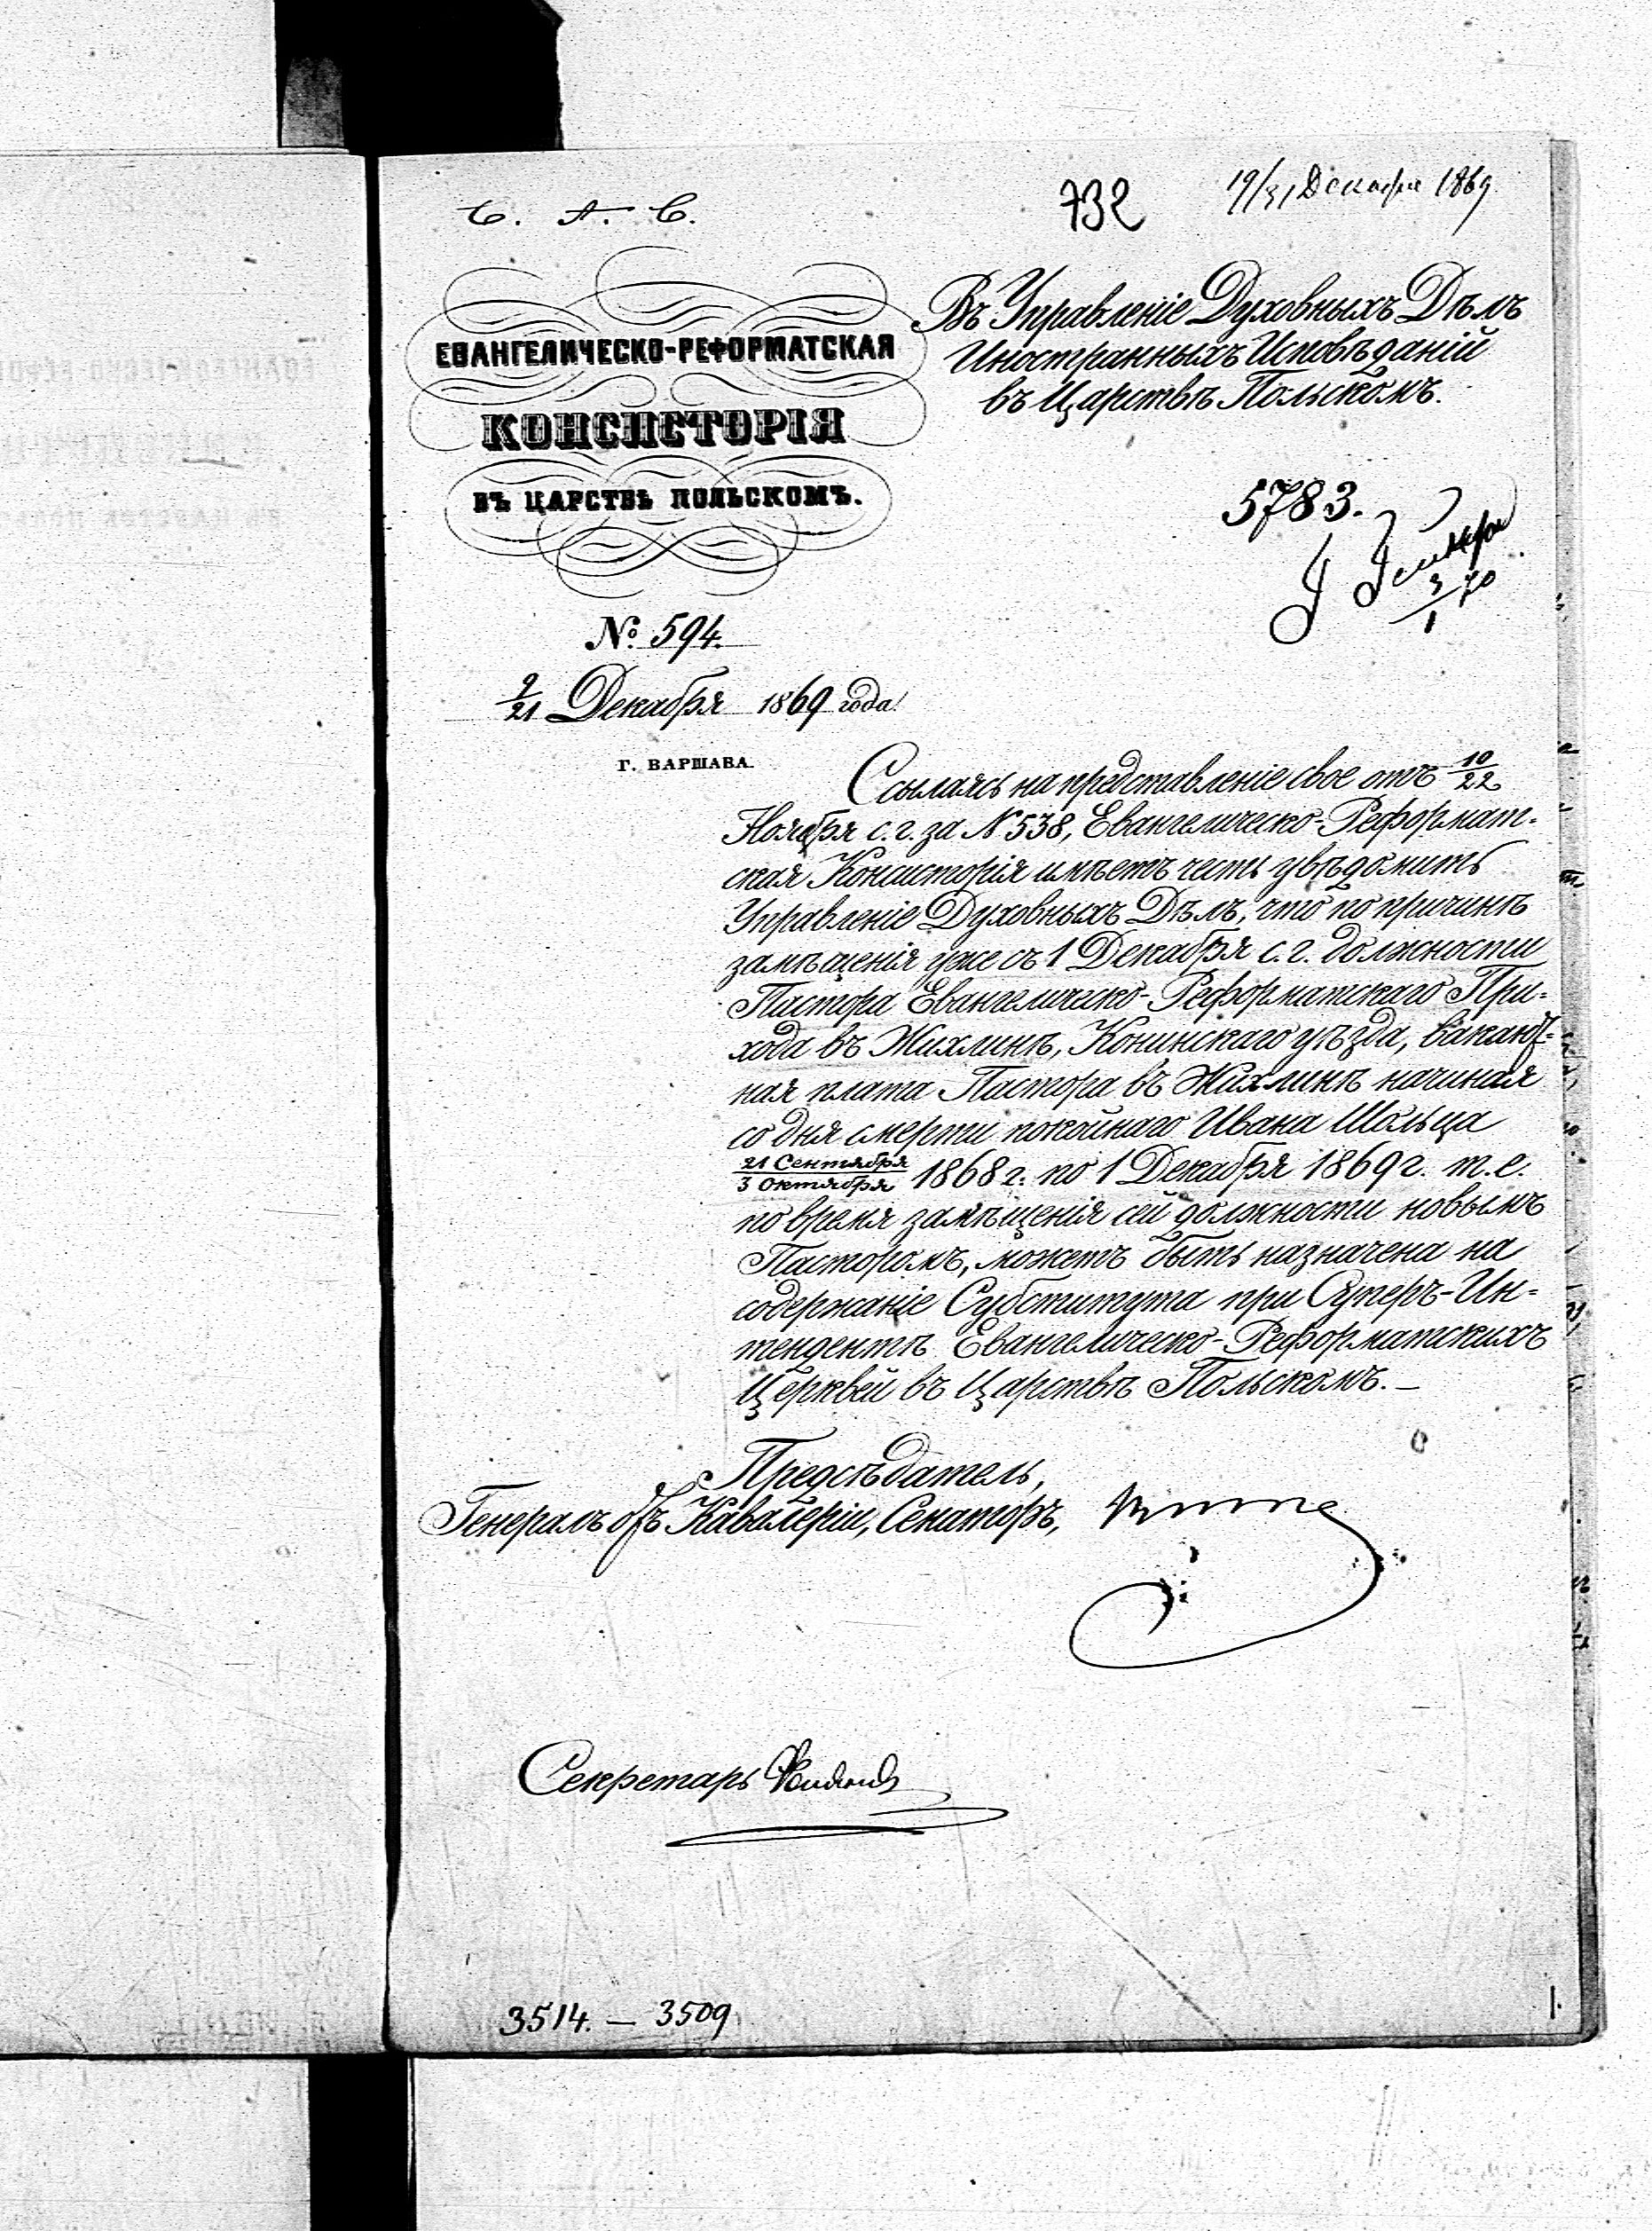 С. А. С.
732
19/31 Декабря 1869
ЕВАНГЕЛИЧЕСКО-РЕФОРМАТСКАЯ
КОНСИСТОРІЯ
ВЪ ЦАРСТВѢ ПОЛЬСКОМЪ.
№ 594.
9/21 Декабря 1869 года.
Г. ВАРШАВА.
Въ Управленіе Духовныхъ Дѣлъ
Иностранныхъ Исповѣданій
въ Царствѣ Польскомъ.
5783.
3/1 70
Ссылаясь на представленіе свое отъ 10/22
Ноября с. г. за № 538, Евангелическо-Реформат-
ская Консисторія имѣетъ честь увѣдомить
Управленіе Духовныхъ Дѣлъ, что по причинѣ
замѣщенія уже съ 1 Декабря с. г. должности
Пастора Евангелическо-Реформатскаго При-
хода въ Жихлинѣ, Конинскаго уѣзда, вакант-
ная плата Пастора въ Жихлинѣ начиная
со дня смерти покойнаго Ивана Шольца
21 Сентября/3 Октября 1868 г. по 1 Декабря 1869 г. т. е.
по время замѣщенія сей должности новымъ
Пасторомъ, можетъ быть назначена на
содержаніе Субститута при Суперъ-Ин-
тендентѣ Евангелическо-Реформатскихъ
Церквей въ Царствѣ Польскомъ.—
Предсѣдатель,
Генералъ отъ Кавалеріи, Сенаторъ,
Секретарь
3514. — 3509